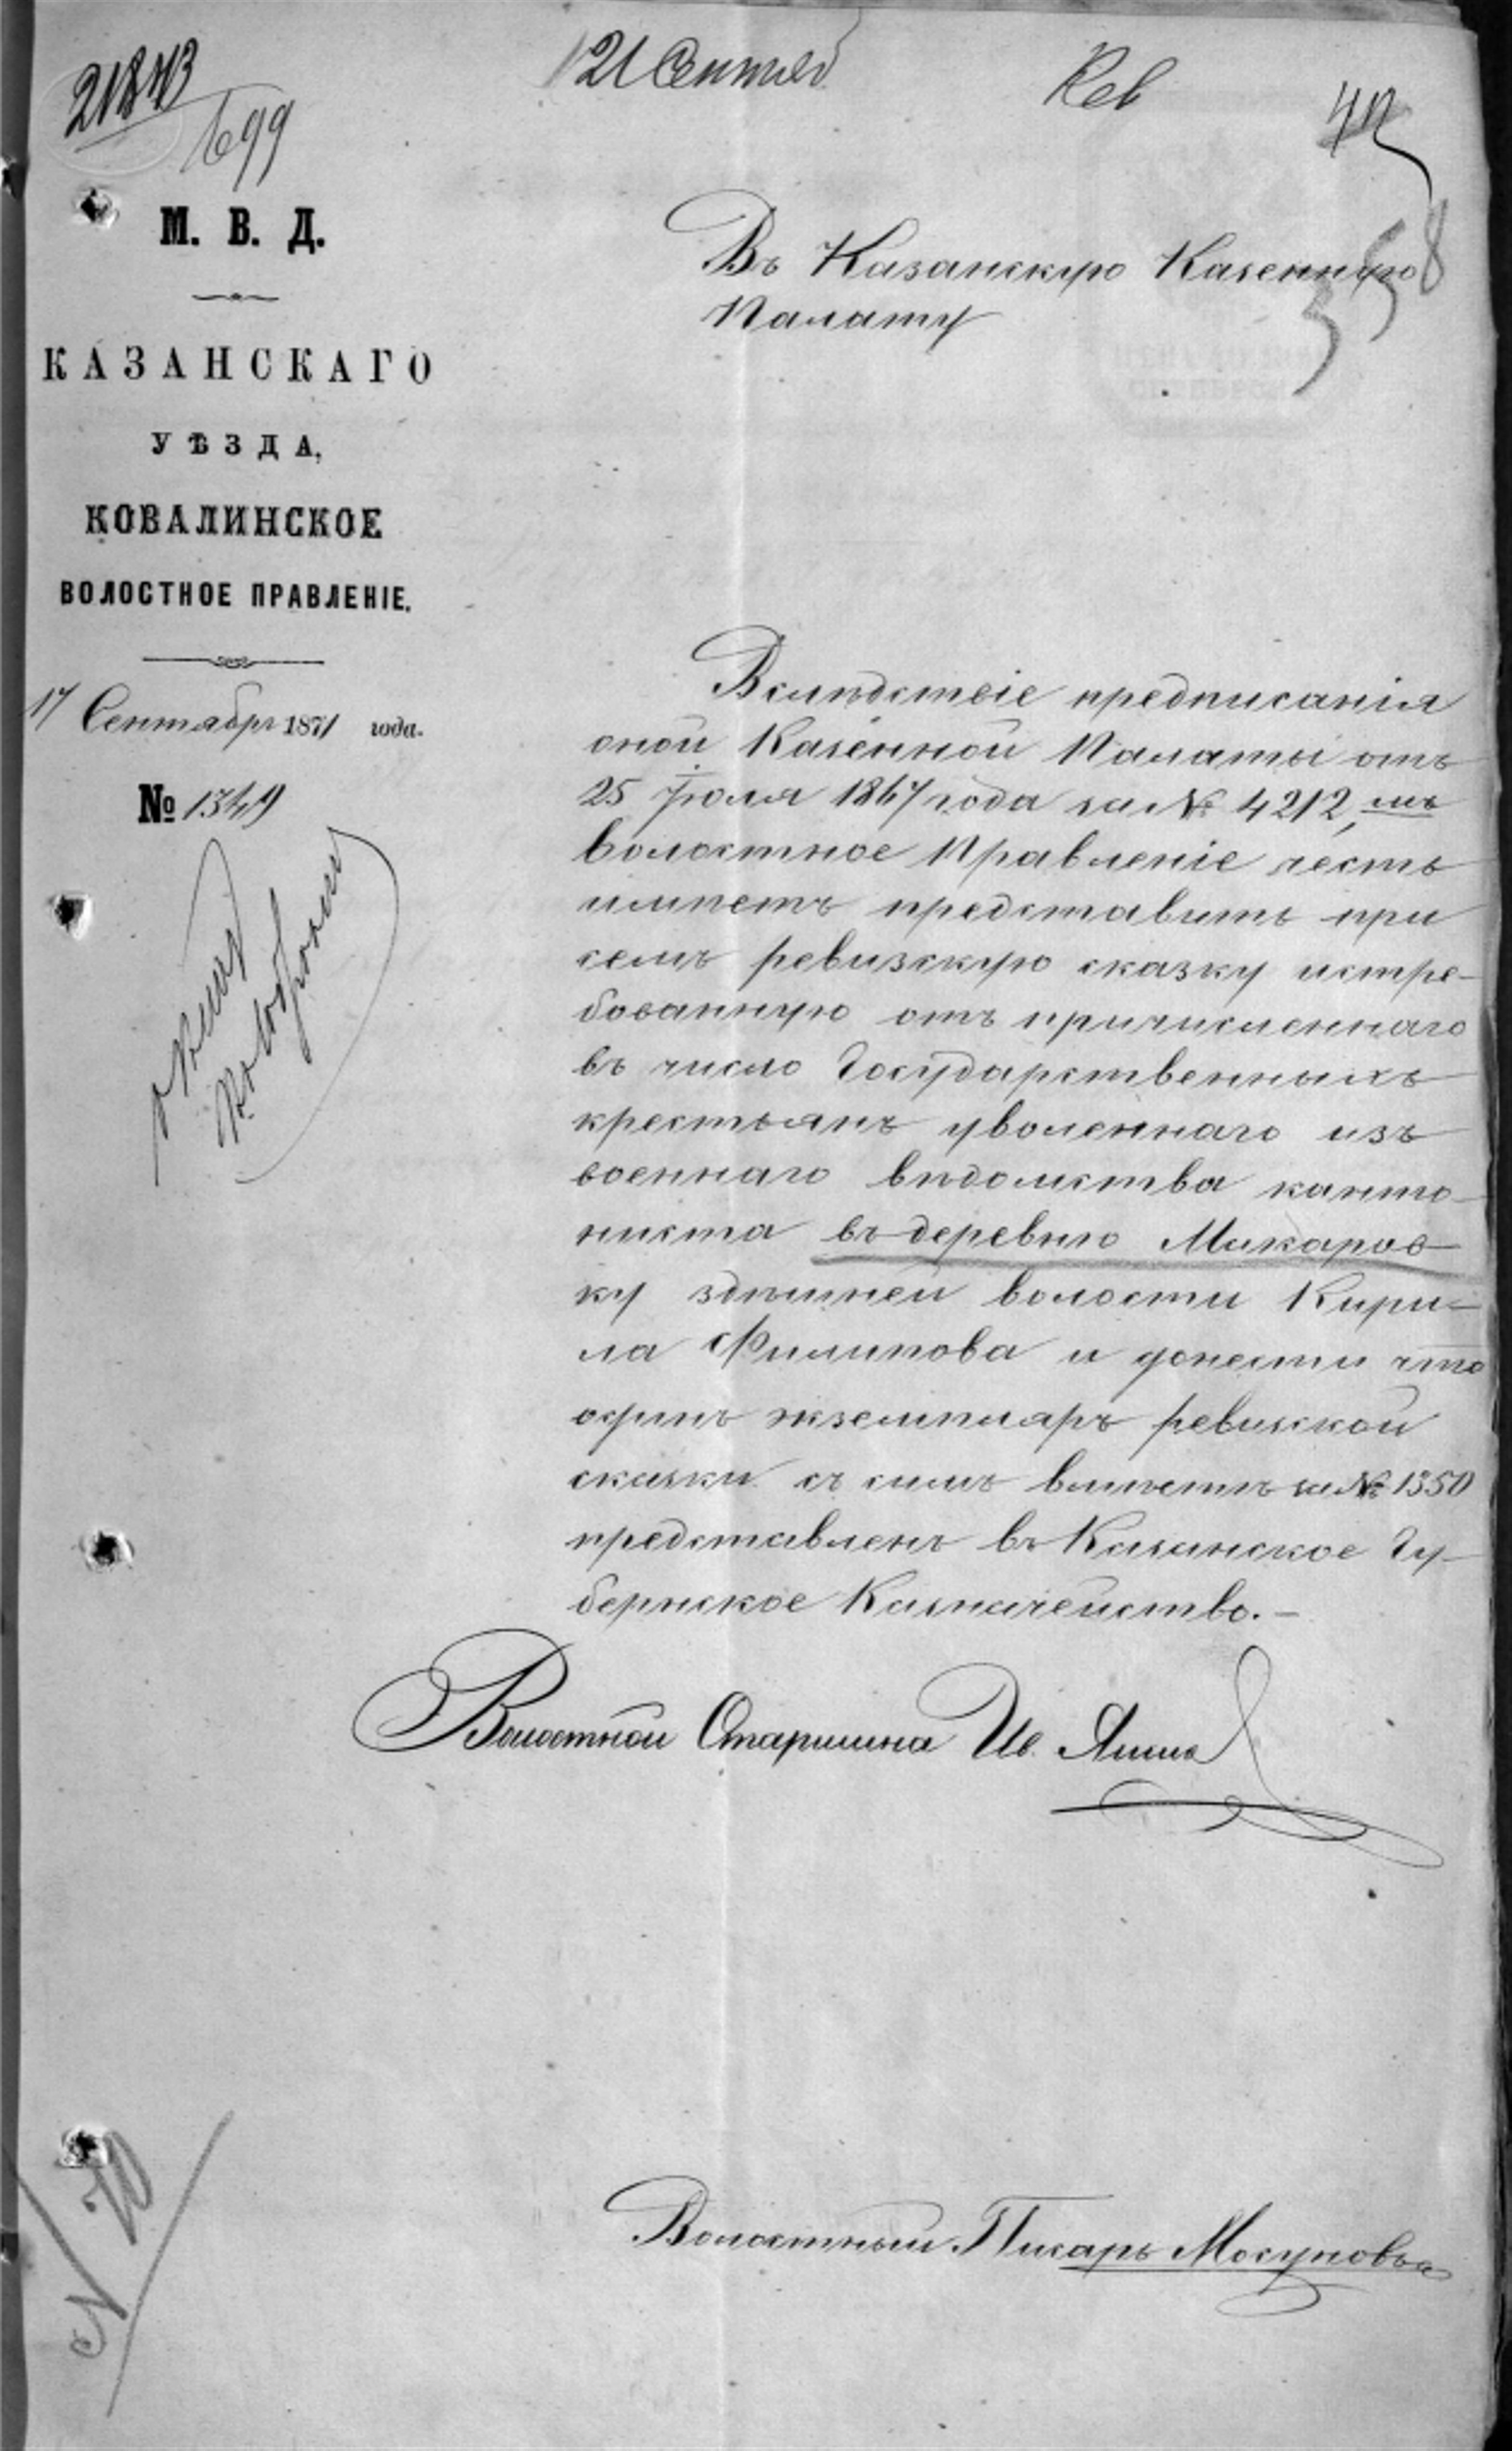 21843
1699
21 Сентяб
Рев
М. В. Д.
КАЗАНСКАГО
УѢЗДА,
КОВАЛИНСКОЕ
ВОЛОСТНОЕ ПРАВЛЕНІЕ.
17 Сентября 1871 года.
№ 1349
Въ Казанскую Казенную
Палату
358
Вслѣдствіе предписанія
оной Казенной Палаты отъ
25 Іюля 1867 года за № 4212,
Волостное Правленіе честь
имѣетъ представить при
семъ ревизскую сказку истре-
бованную отъ причисленнаго
въ число Государственныхъ
крестьянъ уволеннаго изъ
военнаго вѣдомства канто-
ниста въ деревню Макаров-
ку здѣшней волости Кири-
ла Филипова и донести что
одинъ экземпляръ ревизской
сказки съ симъ вмѣстѣ за № 1350
представленъ въ Казанское Гу-
бернское Казначейство.-
Волостной Старшина Ив.
Волостный Писарь Мосуновъ